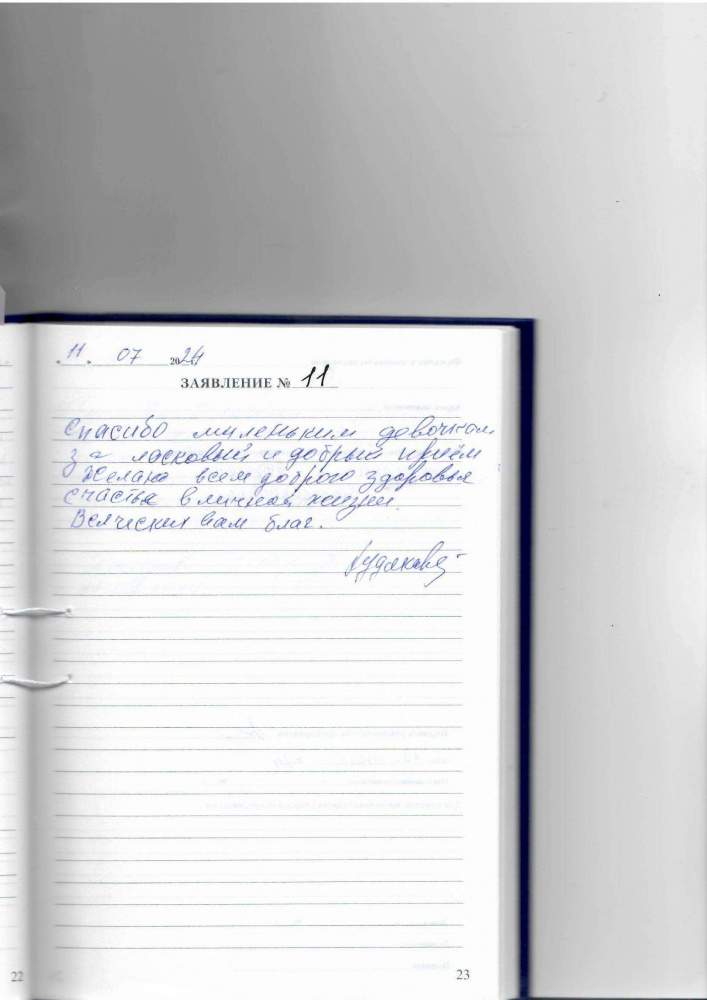 "11" 07 2024
ЗАЯВЛЕНИЕ № 11
Спасибо миленьким девочкам
за ласковый и добрый приём
Желаю всем доброго здоровья
счастья в личной жизни.
Всяческих вам благ.
22
23